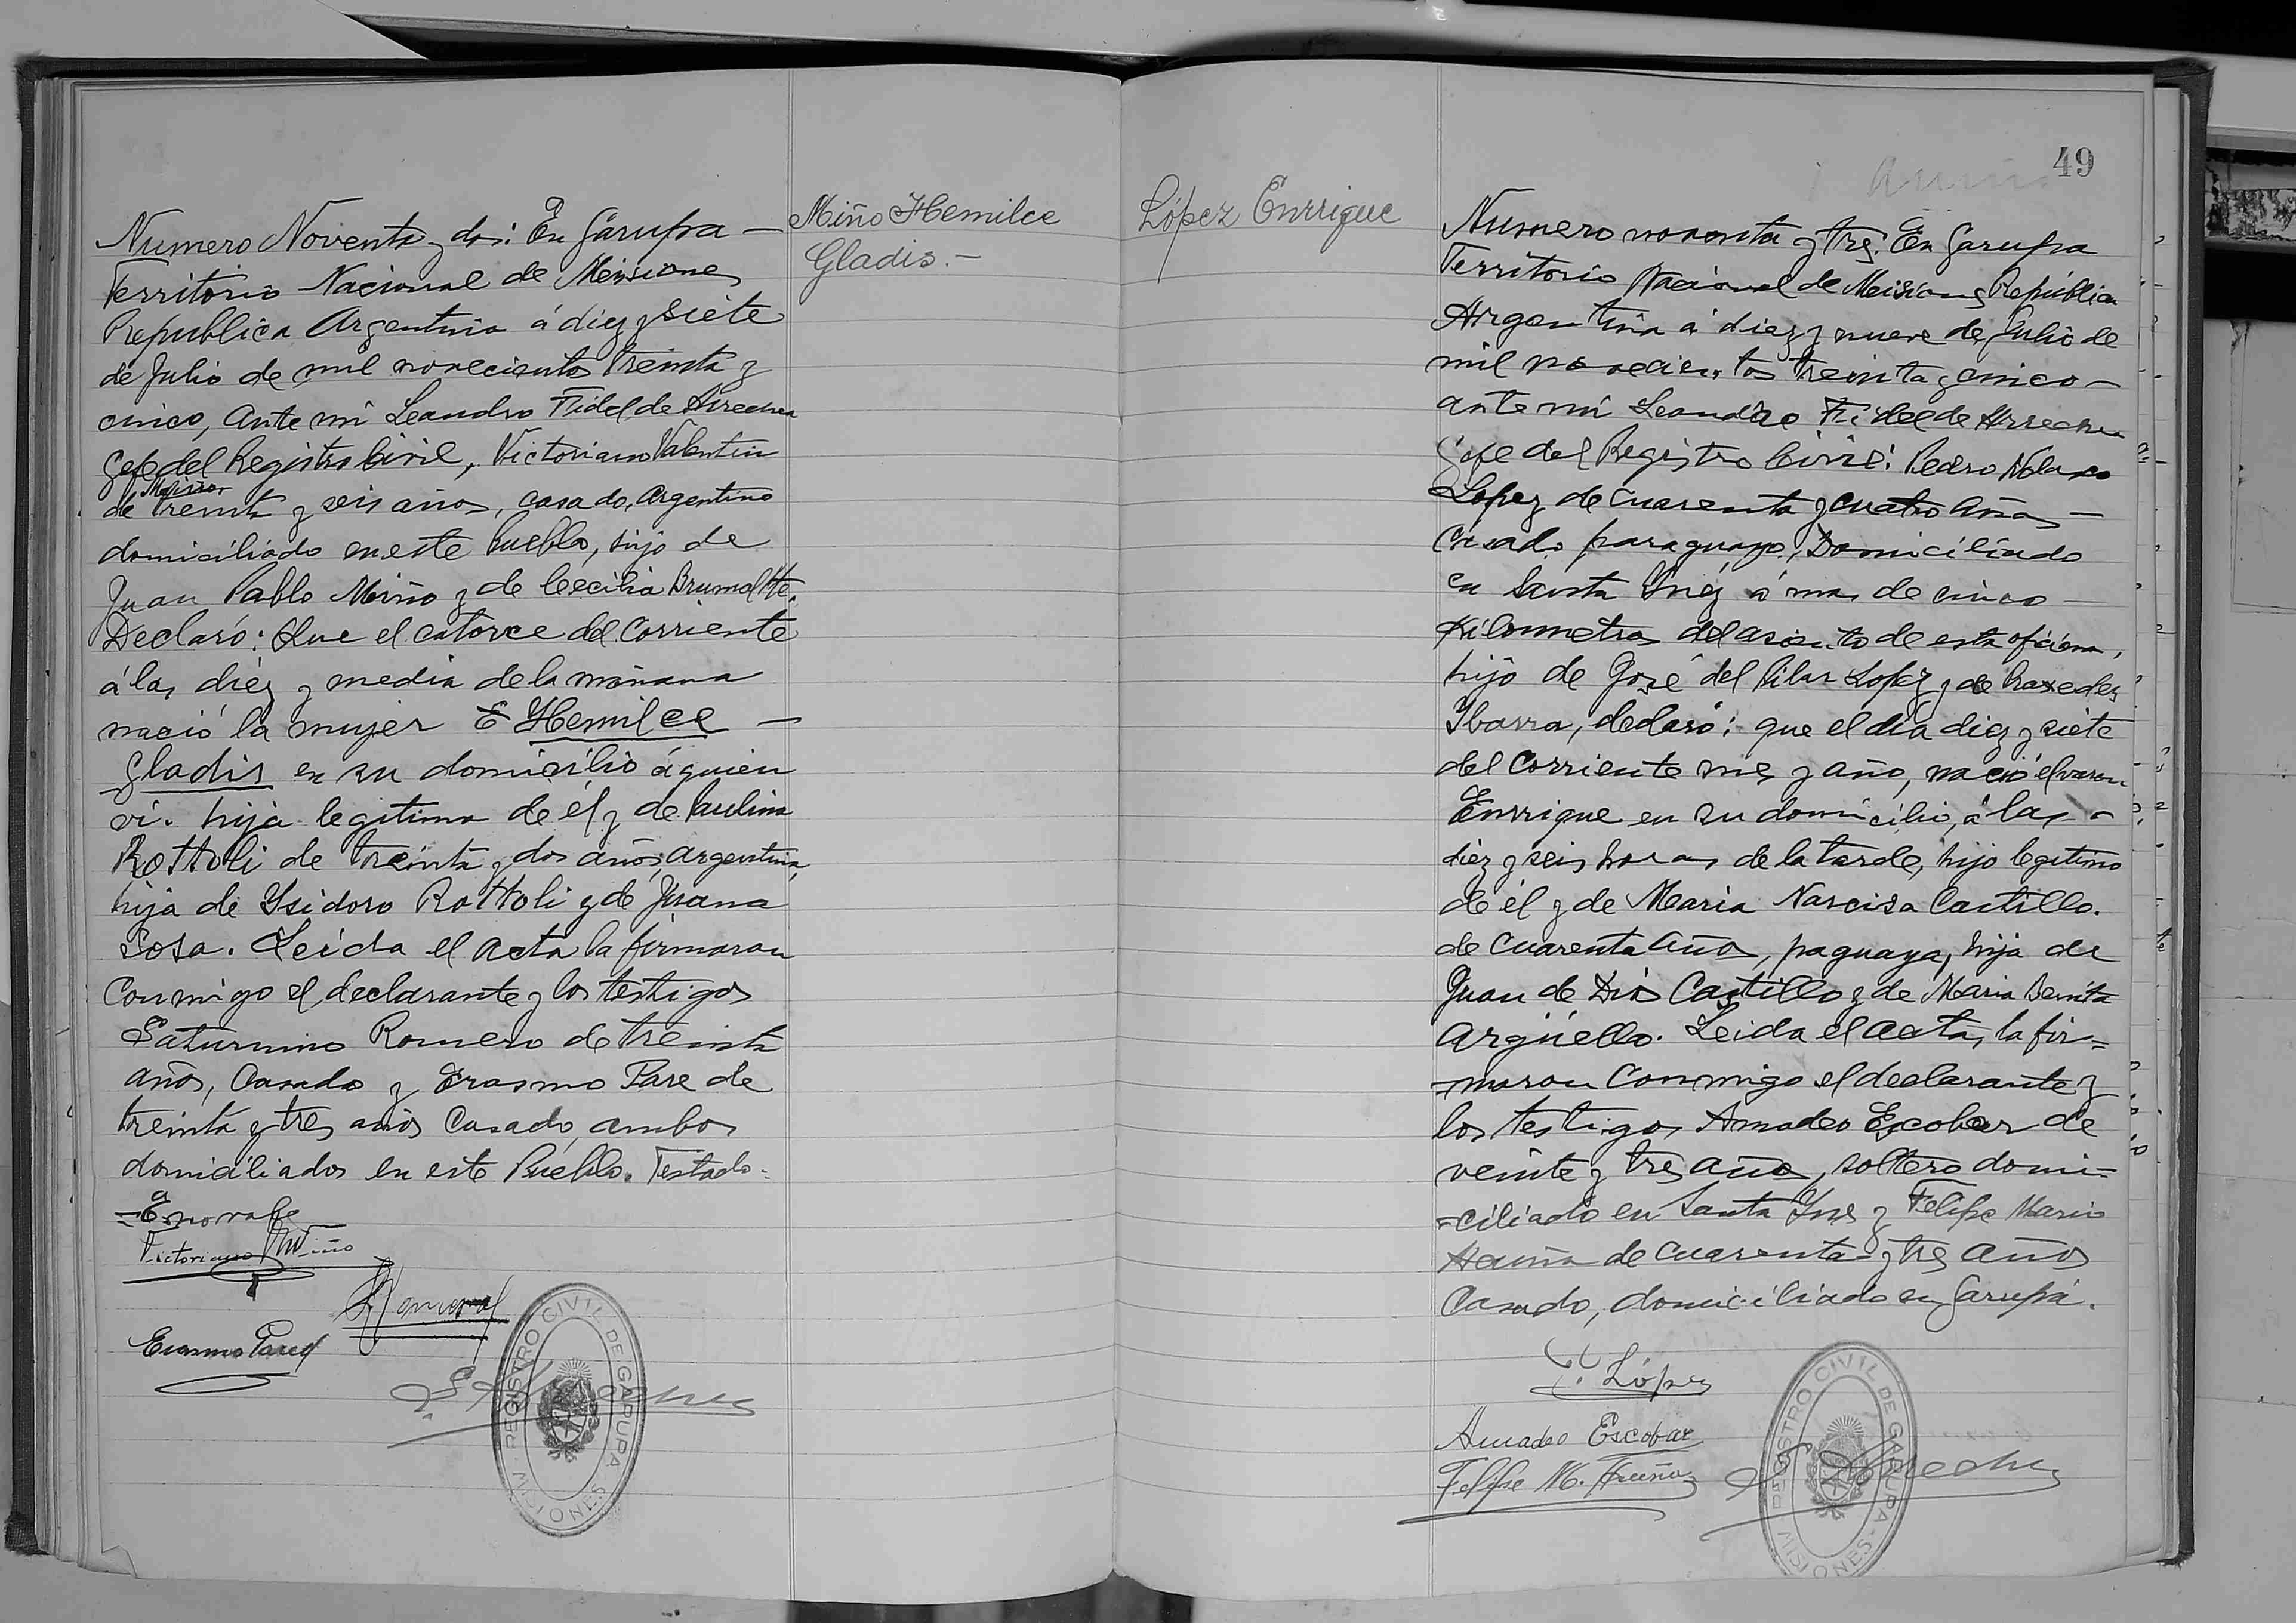 Miño Hemilce
Gladis.-
Numero Noventa y dos: En Garupa -
Territorio Nacional de Misiones
Republica Argentina á diez y siete
de Julio de mil novecientos treinta y
cinco, Ante mi Leandro Fidel de Arrechea
Gefe del Registro Civil, Victoriano Valentin
Miño
de treinta y seis años, casado, Argentino
domiciliado en este Pueblo, hijo de
Juan Pablo Miño y de Cecilia
Declaró: Que el catorce del Corriente
á las diez y media de la mañana
nació la mujer E Hemilce -
Gladis en su domicilio á quien
vi. hija legitima de él y de Paulina
Rottoli de treinta y dos años, argentina,
hija de Ysidoro Rottoli y de Juana
Sosa. Leida el acta la firmaron
conmigo el declarante y los testigos
Saturnino Romero de treinta
años, Casado y Erasmo Pare de
treinta y tres años Casado, ambos
domiciliados en este Pueblo. Testado=
=E no vale
Victoriano Miño
Erasmo
REGISTRO CIVIL DE GARUPA
MISIONES
49
López Enrrique
Numero noventa y tres: En Garupa
Territorio Nacional de Misiones República
Argentina á diez y nueve de Julio de
mil novecientos treinta y cinco -
ante mi Leandro Fidel de Arrechea
Gefe del Registro Civil: Pedro Nolasco
Lopez de cuarenta y cuatro años -
Casado paraguayo, Domiciliado
en Santa Ynez á mas de cinco -
Kilometros del asiento de esta oficina,
hijo de José del Pilar Lopez y de Praxedes
Ybarra, declaró: que el día diez y siete
del Corriente mes y año, nació el varon
Enrrique en su domicilio, á las -
diez y seis horas de la tarde, hijo legitimo
de él y de Maria Narcisa Castillo.
de cuarenta años, paguaya, hija de
Juan de Dios Castillo y de Maria Benita
Argüello. Leida el acta, la fir=
=maron Conmigo el declarante y
los testigos Amadeo Escobar de
veinte y tres años, soltero domi=
=ciliado en Santa Ynes y Felipe Mario
de cuarenta y tres años
Casado, domiciliado en Garupá.
López
Amadeo Escobar
Felipe M.
REGISTRO CIVIL DE GARUPA
MISIONES